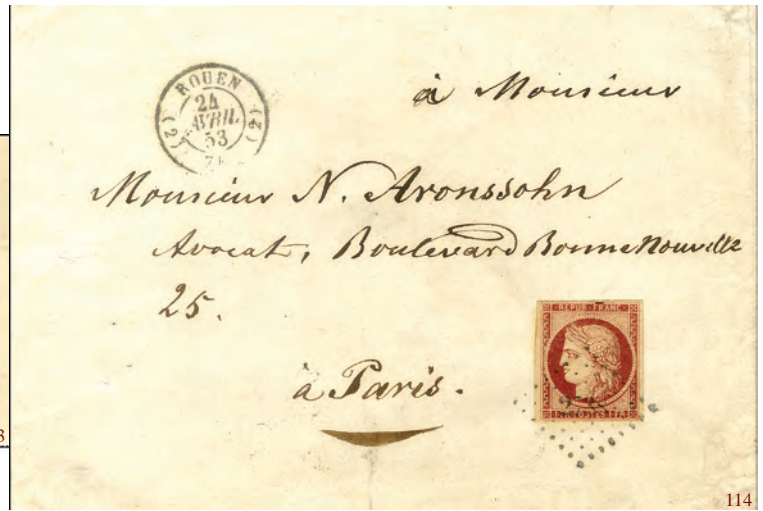 ROUEN
(2) (2)
24
AVRIL
53
à Monsieur
Monsieur N. Aronssohn
Avocat, Boulevard Bonne Nouvelle
25.
à Paris.
REPUB FRANC
1 FR POSTES 1 FR
114
3